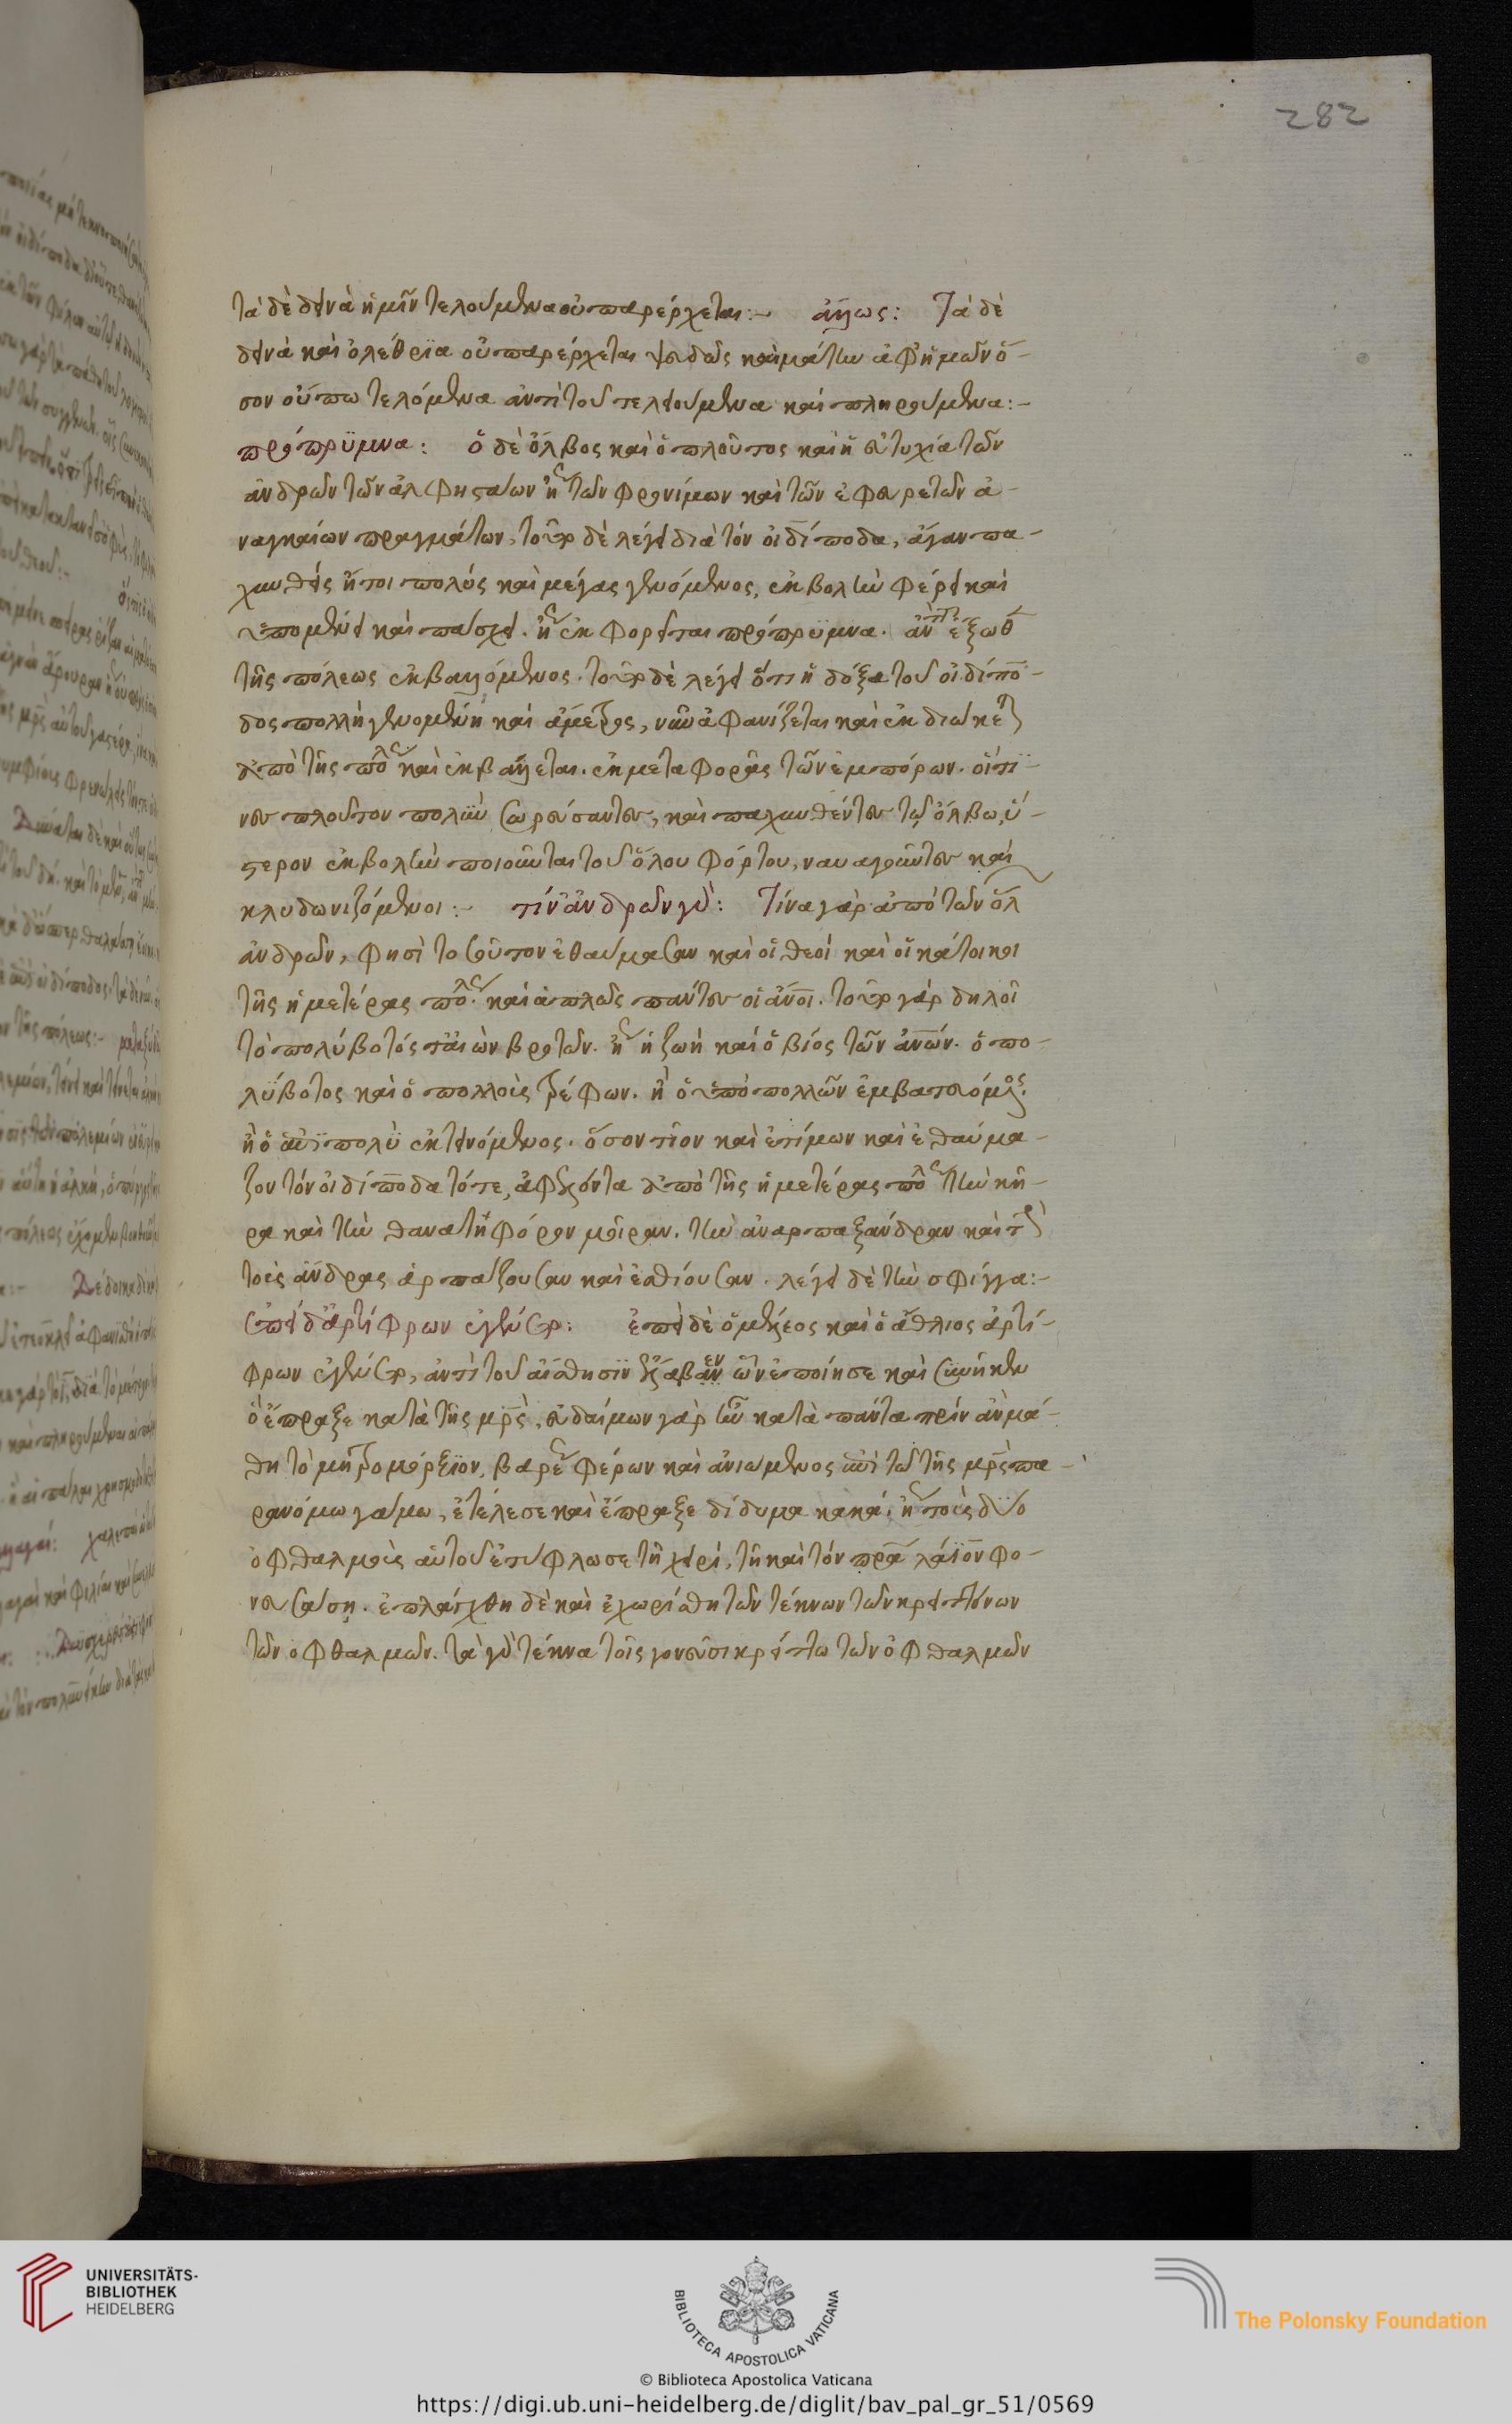 282
τὰ δὲ δεινὰ ἡμῖν τελούμενα οὐ παρέρχεται:~ ἄλλως: Τὰ δὲ
δεινὰ καὶ ὀλέθρϊα οὐ παρέρχεται ψευδῶς καὶ μάτην ἀφ' ἡμῶν ὅ-
σον οὔπω τελόμενα ἀντὶ τοῦ τελειούμενα καὶ πληρούμενα:~
πρόπρϋμνα: ὁ δὲ ὄλβος καὶ ὁ πλοῦτος καὶ ἡ εὐτυχία τῶν
ἀνδρῶν τῶν ἀλφηστάων ἤγουν τῶν φρονίμων καὶ τῶν ἐφευρετῶν ἀ-
ναγκαίων πραγμάτων, τοῦτο δὲ λέγει διὰ τὸν οἰδίποδα, ἄγαν πα-
χυνθεὶς ἤτοι πολὺς καὶ μέγας γενόμενος, ἐκβολὴν φέρει καὶ
ὑπομένει καὶ πάσχει. ἤγουν ἐκφορεῖται πρόπρϋμνα. ἀντὶ ἔξωθ
τῆς πόλεως ἐκβαλλόμενος. τοῦτο δὲ λέγει ὅτι ἡ δόξα τοῦ οἰδίπο-
δος πολλὴ γενομένη καὶ ἄμετρος, νῦν ἀφανίζεται καὶ ἐκδιώκετ
ἀπὸ τῆς πόλ καὶ ἐκβάλλεται. ἐκ μεταφορᾶς τῶν ἐμπόρων. οἵτι-
νες πλοῦτον πολὺν σωρεύσαντες, καὶ παχυνθέντες τῷ ὄλβῳ, ὕ-
στερον ἐκβολὴν ποιοῦνται τοῦ ὅλου φόρτου, ναυαγοῦντες καὶ
κλυδωνιζόμενοι:~ τίν' ἀνδρῶν γὰρ: Τίνα γὰρ ἀπὸ τῶν ὅλ
ἀνδρῶν, φησὶ τοσοῦτον ἐθαύμασαν καὶ οἱ θεοὶ καὶ οἱ κάτοικοι
τῆς ἡμετέρας πόλ. καὶ ἁπλῶς πάντες οἱ ἄνοι. τοῦτο γὰρ δηλοῖ
τὸ πολύβοτός τ' αἰὼν βροτῶν. ἤγουν ἡ ζωὴ καὶ ὁ βίος τῶν ἀνων. ὁ πο-
λύβοτος καὶ ὁ πολλοὺς τρέφων. ἢ ὁ ὑπὸ πολλῶν ἐμβατευόμενος.
ἢ ὁ ἐπὶ πολὺ ἐκτεινόμενος. ὅσον τῖον καὶ ἐτίμων καὶ ἐθαύμα-
ζον τὸν οἰδίποδα τότε, ἀφελόντα ἀπὸ τῆς ἡμετέρας πόλ τὴν κῆ-
ρα καὶ τὴν θανατηφόρον μοῖραν. τὴν ἀναρπαξάνδραν καὶ τὴν
τοὺς ἄνδρας ἁρπάζουσαν καὶ ἐσθίουσαν. λέγει δὲ τὴν σφίγγα:~
ἐπεὶ δ' ἀρτίφρων ἐγένετο: ἐπεὶ δὲ ὁ μέλεος καὶ ὁ ἄθλιος ἀρτί-
φρων ἐγένετο, ἀντὶ τοῦ αἴσθησϊν ἔλαβεν ὧν ἐποίησε καὶ συνῆκεν
ὃ ἔπραξε κατὰ τῆς μρς, εὐδαίμων γὰρ ἦν κατὰ πάντα πρὶν ἂν μά-
θῃ τὸ μητρομόρξϊον, βαρέως φέρων καὶ ἀνιώμενος ἐπὶ τῷ τῆς μρς πα-
ρανόμω γάμω, ἐτέλεσε καὶ ἔπραξε δίδυμα κακά. ἤγουν τοὺς δύο
ὀφθαλμοὺς αὐτοῦ ἐτύφλωσε τῇ χειρὶ, τῇ καὶ τὸν πρα λάϊον φο-
νευσάσῃ. ἐπλάγχθη δὲ καὶ ἐχωρίσθη τῶν τέκνων τῶν κρειττόνων
τῶν ὀφθαλμῶν. τὰ γὰρ τέκνα τοῖς γονεῦσι κρείττω τῶν ὀφθαλμῶν
UNIVERSITÄTS-
BIBLIOTHEK
HEIDELBERG
BIBLIOTECA APOSTOLICA VATICANA
The Polonsky Foundation
© Biblioteca Apostolica Vaticana
https://digi.ub.uni-heidelberg.de/diglit/bav_pal_gr_51/0569